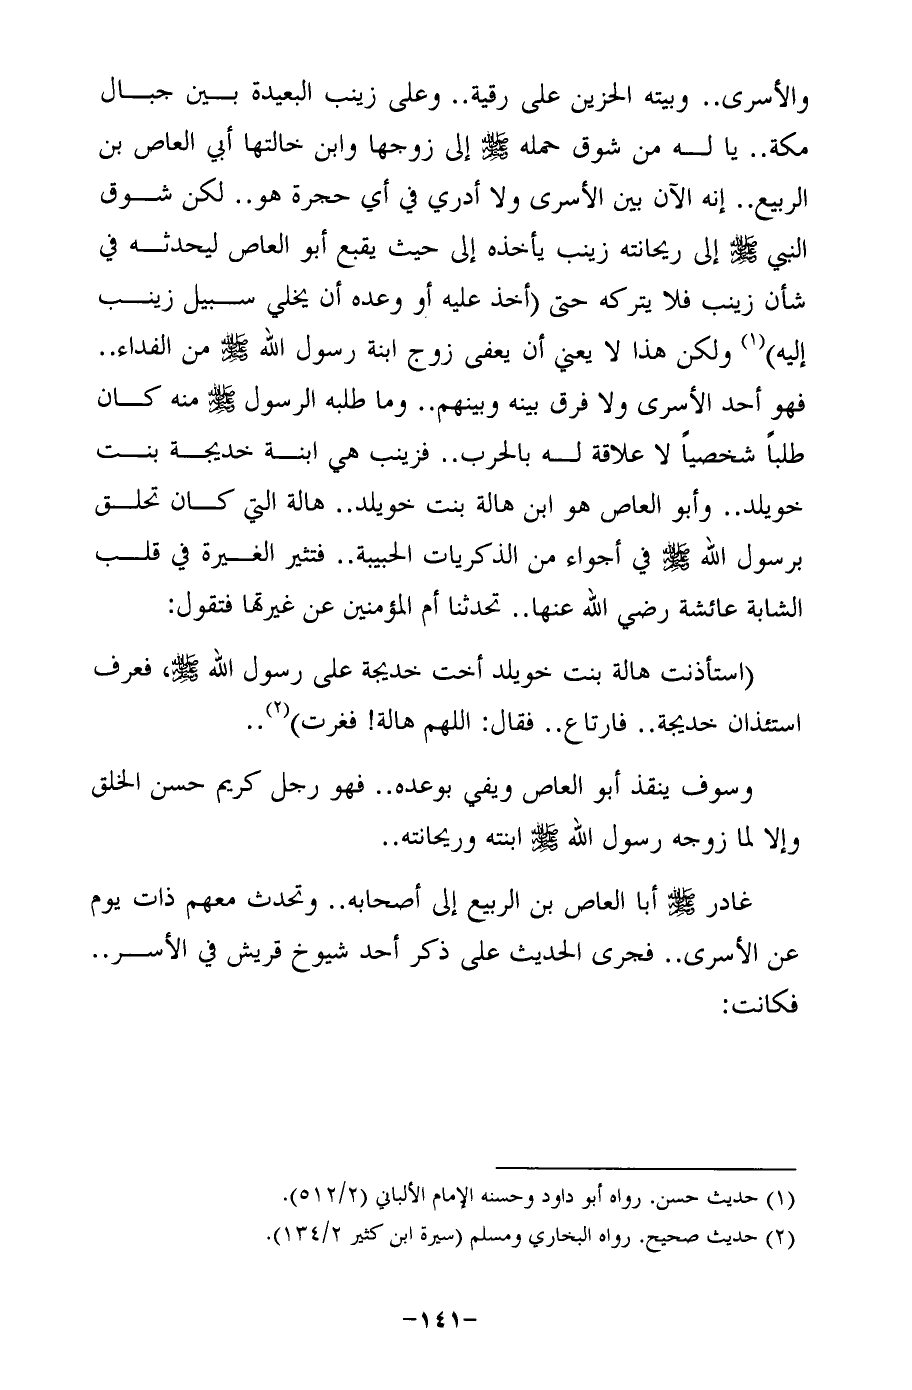 والأسرى.. وبيته الحزين على رقية.. وعلى زينب البعيدة بين جبال
مكة.. يا له من شوق حمله ﷺ إلى زوجها وابن خالتها أبي العاص بن
الربيع.. إنه الآن بين الأسرى ولا أدري في أي حجرة هو.. لكن شوق
النبي ﷺ إلى ريحانته زينب يأخذه إلى حيث يقبع أبو العاص ليحدثه في
شأن زينب فلا يتركه حتى (أخذ عليه أو وعده أن يخلي سبيل زينب
إليه)(١) ولكن هذا لا يعني أن يعفى زوج ابنة رسول الله ﷺ من الفداء..
فهو أحد الأسرى ولا فرق بينه وبينهم.. وما طلبه الرسول ﷺ منه كان
طلباً شخصياً لا علاقة له بالحرب.. فزينب هي ابنة خديجة بنت
خويلد.. وأبو العاص هو ابن هالة بنت خويلد.. هالة التي كان تحلق
برسول الله ﷺ في أجواء من الذكريات الحبيبة.. فتثير الغيرة في قلب
الشابة عائشة رضي الله عنها.. تحدثنا أم المؤمنين عن غيرتها فتقول:
(استأذنت هالة بنت خويلد أخت خديجة على رسول الله ﷺ، فعرف
استئذان خديجة.. فارتاع.. فقال: اللهم هالة! فغرت)(٢)..
وسوف ينقذ أبو العاص ويفي بوعده.. فهو رجل كريم حسن الخلق
وإلا لما زوجه رسول الله ﷺ ابنته وريحانته..
غادر ﷺ أبا العاص بن الربيع إلى أصحابه.. وتحدث معهم ذات يوم
عن الأسرى.. فجرى الحديث على ذكر أحد شيوخ قريش في الأسر..
فكانت:
(١) حديث حسن. رواه أبو داود وحسنه الإمام الألباني (٥١٢/٢).
(٢) حديث صحيح. رواه البخاري ومسلم (سيرة ابن كثير ١٣٤/٢).
-١٤١-